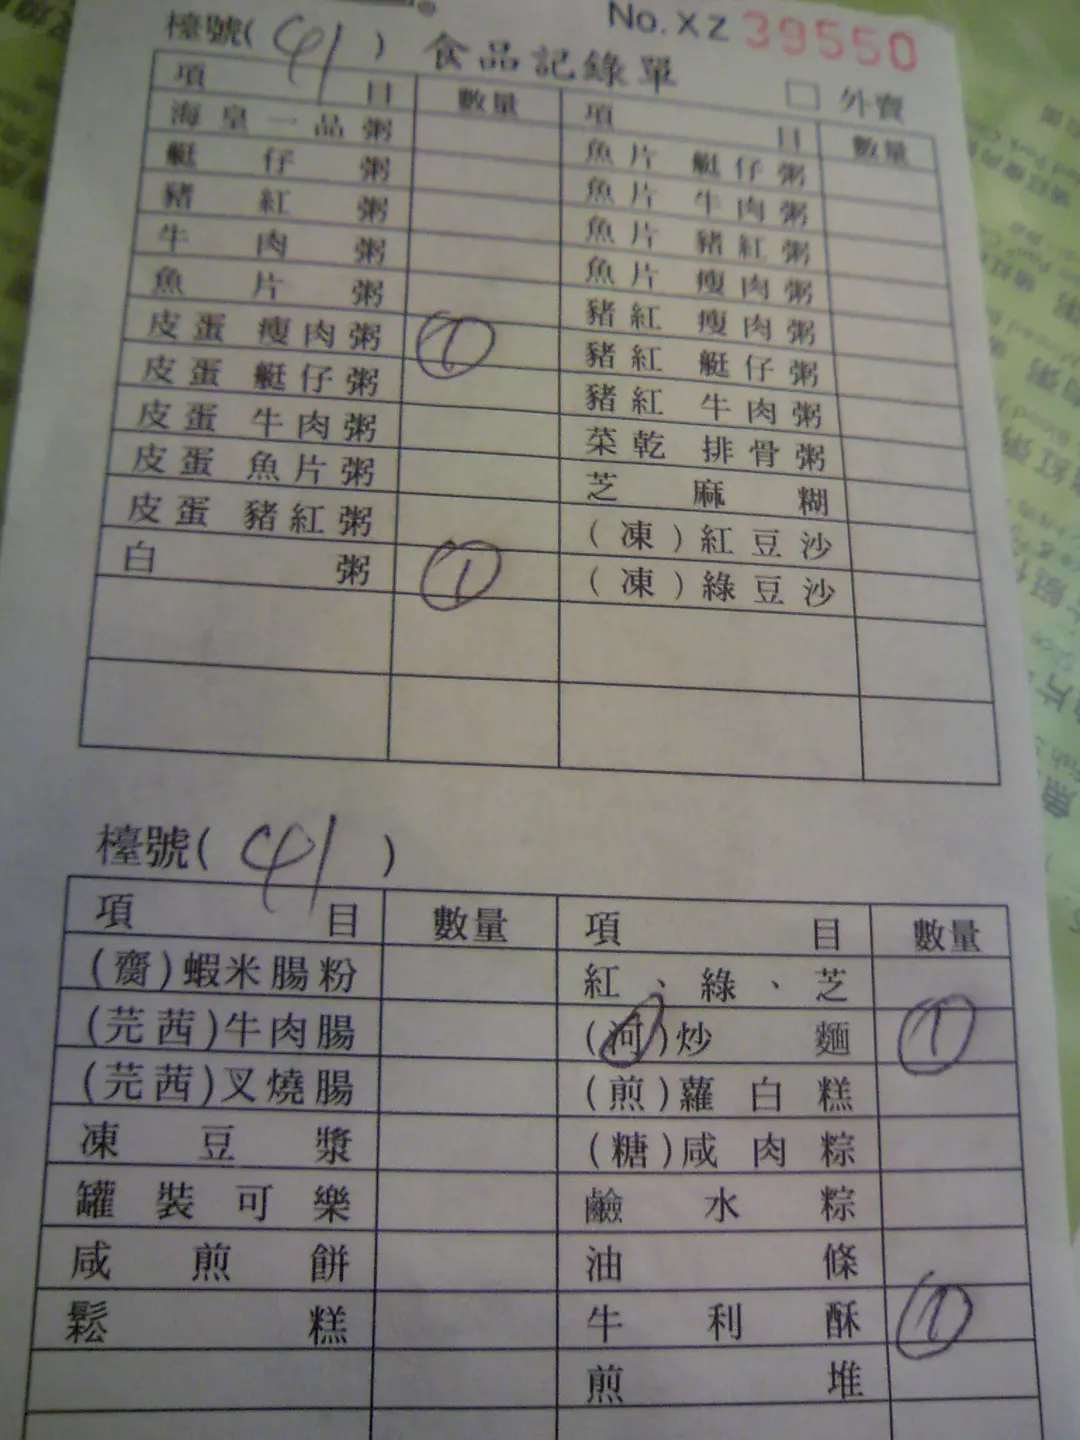 No. XZ 39550
檯號( 41 ) 食品記錄單 外賣
項目 數量 項目 數量
海皇一品粥 魚片艇仔粥
艇仔粥 魚片牛肉粥
豬紅粥 魚片豬紅粥
牛肉粥 魚片瘦肉粥
魚片粥 豬紅瘦肉粥
皮蛋瘦肉粥 1 豬紅艇仔粥
皮蛋艇仔粥 豬紅牛肉粥
皮蛋牛肉粥 菜乾排骨粥
皮蛋魚片粥 芝麻糊
皮蛋豬紅粥 (凍)紅豆沙
白粥 1 (凍)綠豆沙
檯號( 41 )
項目 數量 項目 數量
(齋)蝦米腸粉 紅、綠、芝
(芫茜)牛肉腸 (河)炒麵 1
(芫茜)叉燒腸 (煎)蘿白糕
凍豆漿 (糖)咸肉粽
罐裝可樂 鹼水粽
咸煎餅 油條
鬆糕 牛利酥 1
煎堆